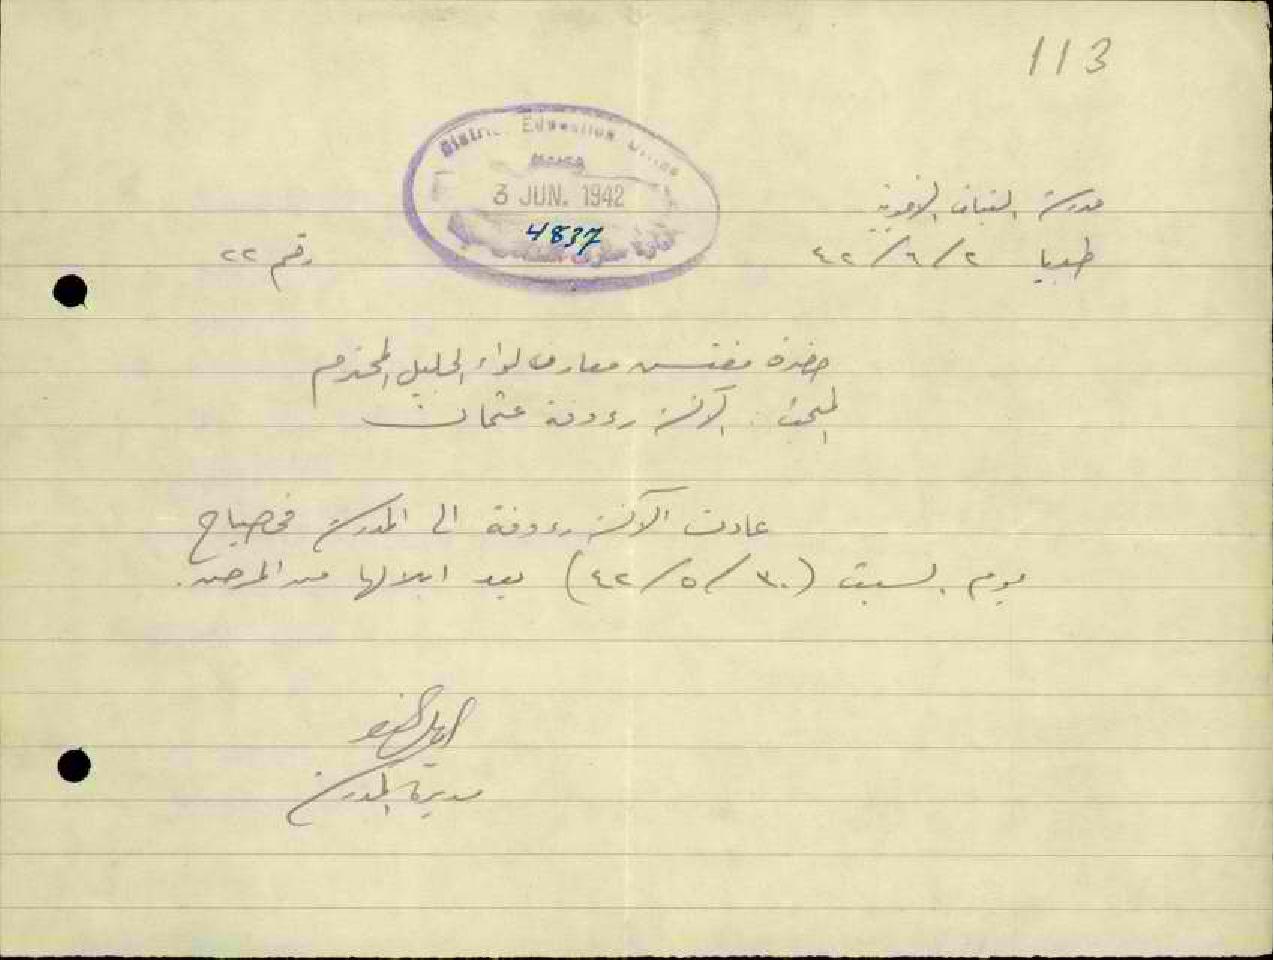 113
District Education Office
3 JUN. 1942
4837
مدرسة البنات الاميرية
طبريا ٢/٦/٤٢
رقم ٢٢
حضرة مفتش معارف لواء الجليل المحترم
المبحث : الآنسة رءوفة عثمان
عادت الآنسة رءوفة الى المدرسة في صباح
يوم السبت (٣٠/٥/٤٢) بعد ابلالها من المرض.
مديرة المدرسة